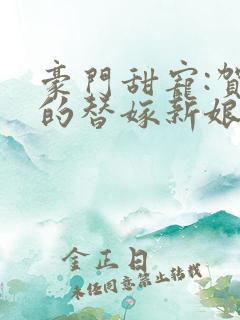 豪門甜寵:賀
的替嫁新娘
金正日
未经同意禁止转载